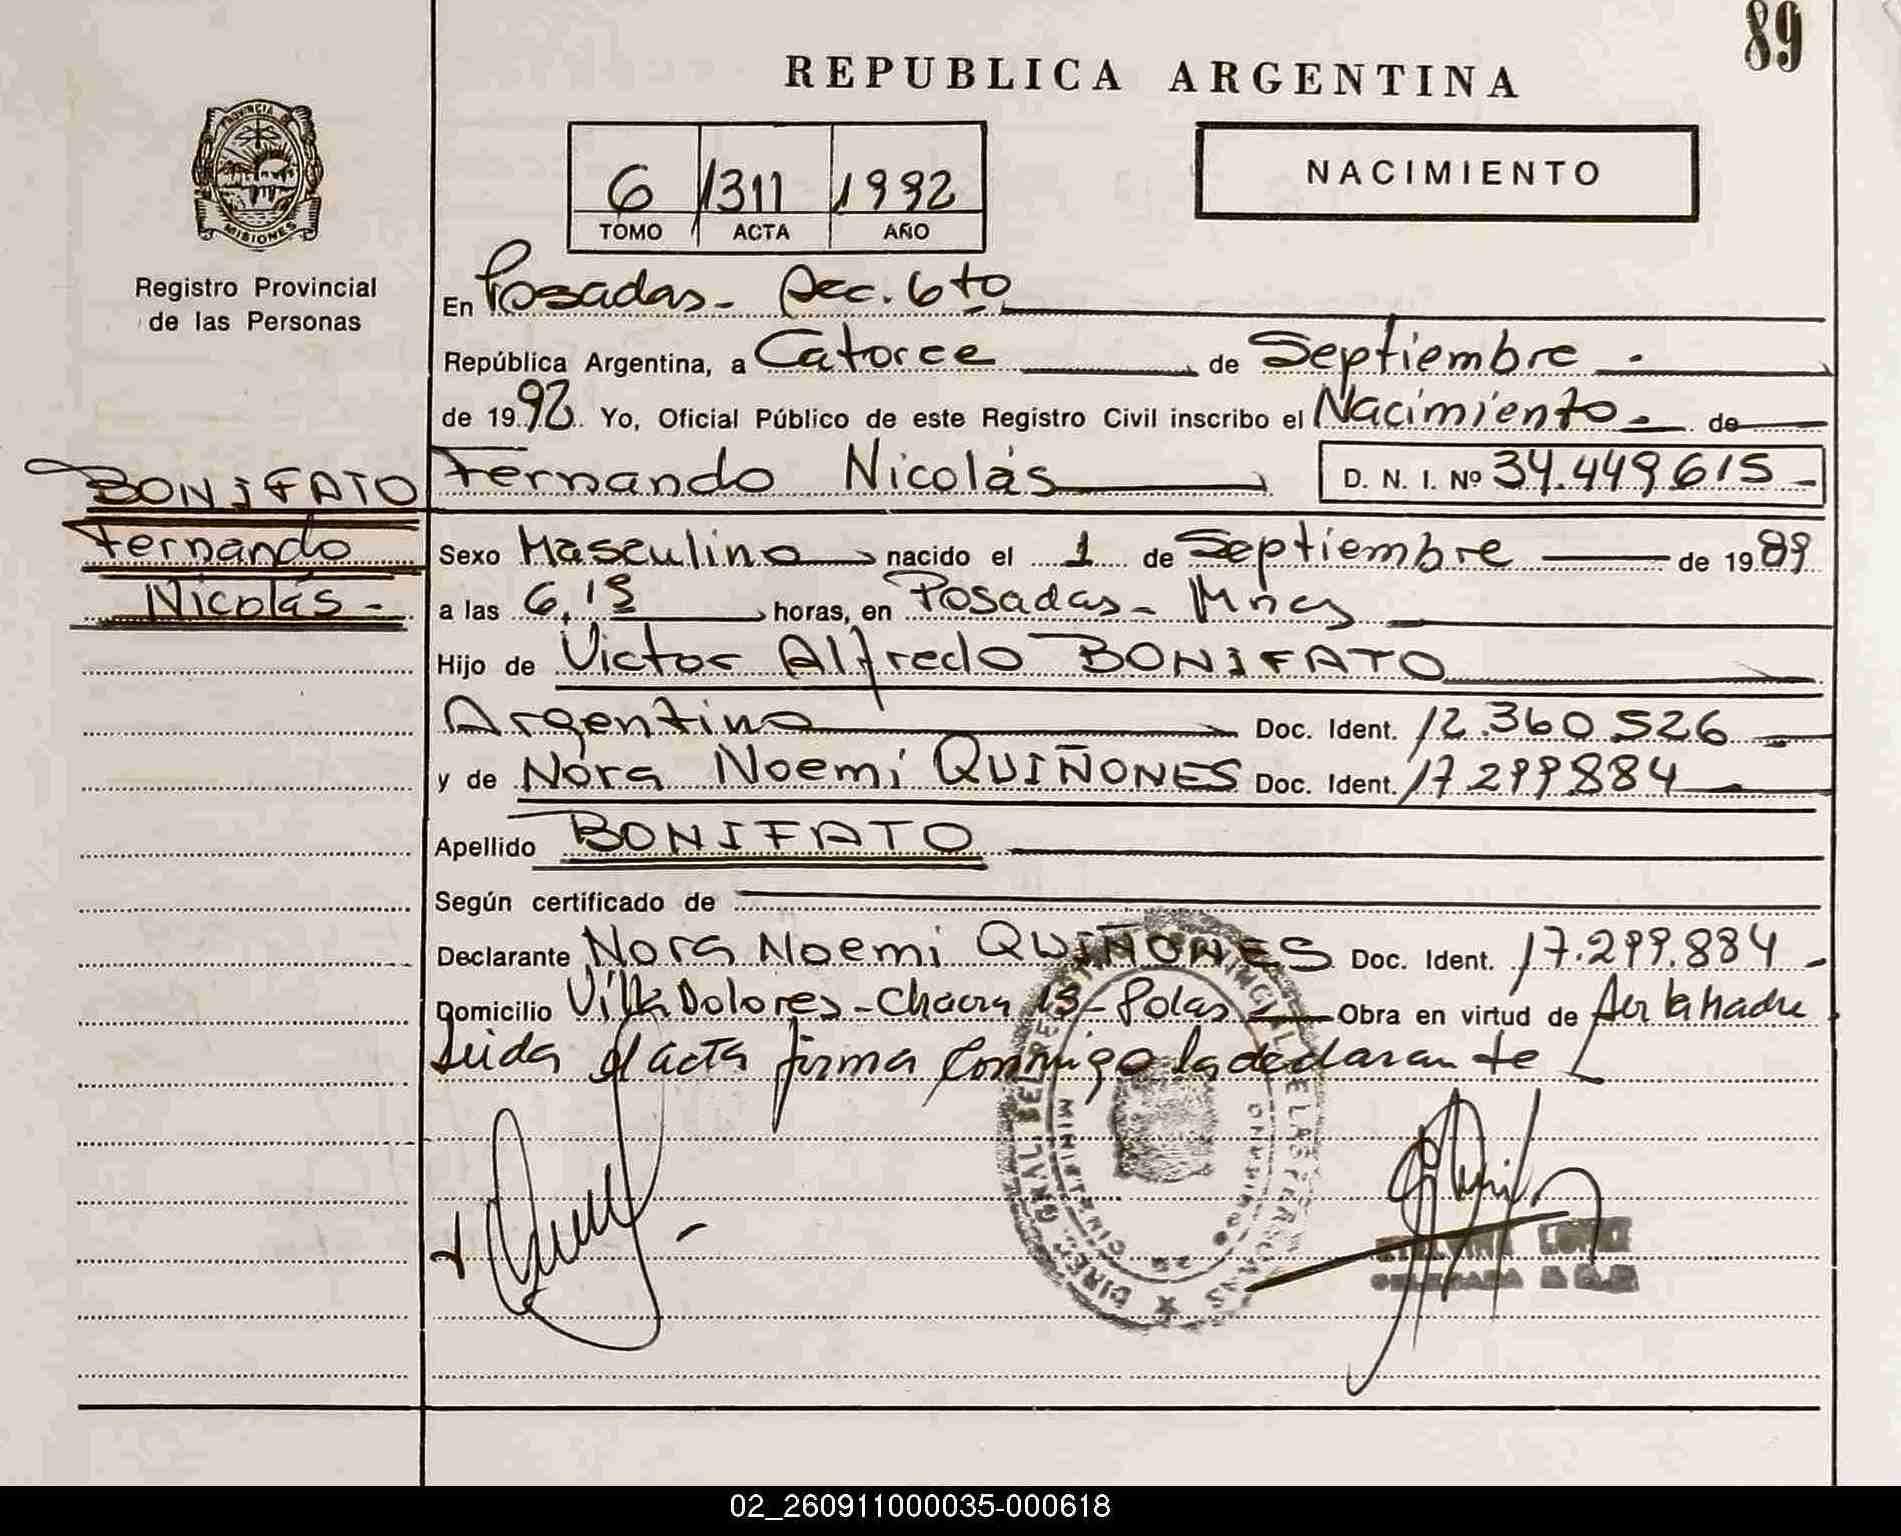 89
REPUBLICA ARGENTINA
PROVINCIA DE
MISIONES
Registro Provincial
de las Personas
NACIMIENTO
6 1311 1992
TOMO ACTA AÑO
En Posadas - Secc. 6to
República Argentina, a Catorce de Septiembre .
de 19 92 Yo, Oficial Público de este Registro Civil inscribo el Nacimiento - de
BONIFATO
Fernando
Nicolás -
Fernando Nicolás D. N. I. Nº 34.449.615 -
Sexo Masculino nacido el 1 de Septiembre de 19 89
a las 6,15 horas, en Posadas - Mnes
Hijo de Victor Alfredo BONIFATO
Argentina Doc. Ident. 12.360.526
y de Nora Noemi QUIÑONES Doc. Ident. 17.299.884
Apellido BONIFATO
Según certificado de
Declarante Nora Noemi QUIÑONES Doc. Ident. 17.299.884 -
Domicilio Villa Dolores - Chacra - Pdas Obra en virtud de ser la madre
Leida el acta firma conmigo la declarante
02_260911000035-000618